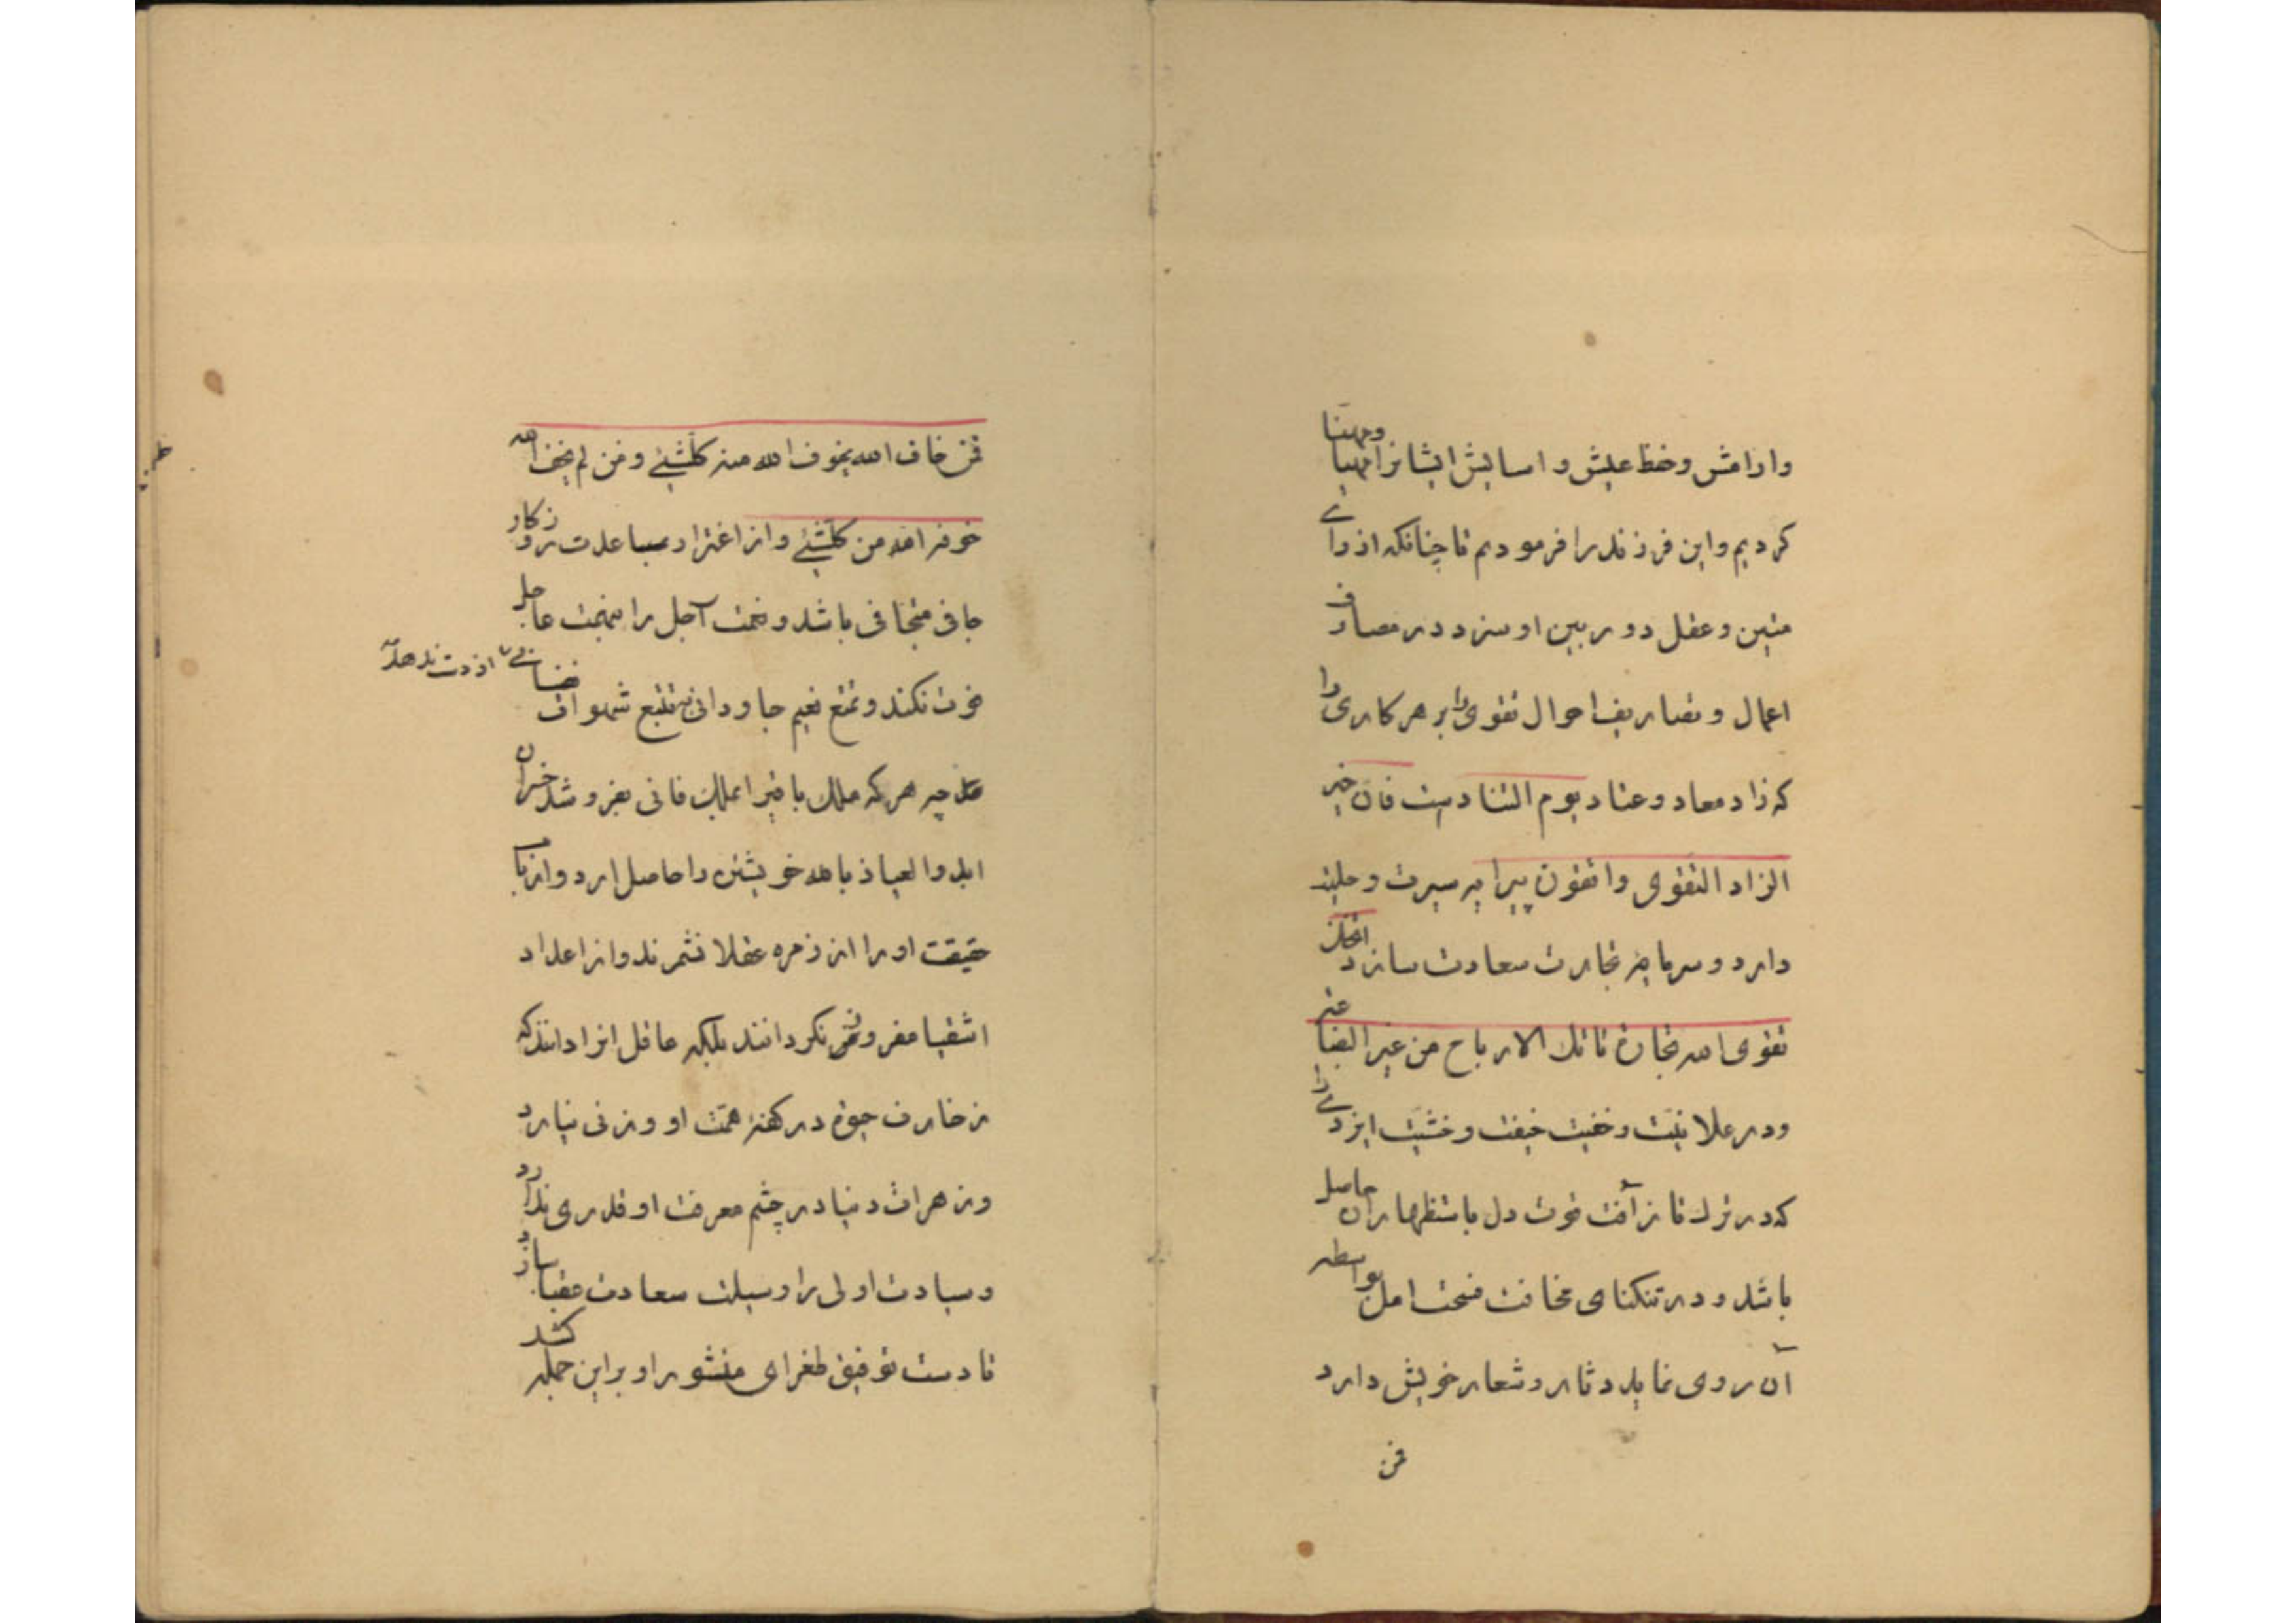 وارامش وحفظ عیش و اسایش ایشانرا مهیا ومهنا
کردیم واین فرزند را فرمودیم تا چنانکه از رای
متین و عقل دوربین او سزد در مصارف
اعمال و تصاریف احوال تقوی را بر هر کاری
که زاد معاد وعتاد یوم التنادست فان خیر
الزاد التقوی واتقون پیرایه سیرت وحلیت
دارد و سرمایه تجارت سعادت سازد اتخاذ
تقوی الله تجارة تاتك الارباح من غیر البضا
ودر علانیت وخفیت خیفت وخشیت ایزدی را
که در نزلت آفت فوت دل باستظهار آن حاصل
باشد و در تنکنای مخافت فسحت امل بواسطه
آن روی نماید دثار وشعار خویش دارد
فمن
فمن خاف الله یخوف الله منه کلشیٔ ومن لم یخف الله
خوفه الله من کلشیٔ واز اغترار بمساعدت روزکار
جافی متجافی باشد و نعمت آجل را عاجل
فوت نکند و تمتع نعیم جاودانی بتتبع شهوات نفسانی
از دست ندهد
چه هر که ملك باقی را بملك فانی بفروشد خسران
ابد والعیاذ بالله خویشتن را حاصل ارد وارباب
حقیقت او را از زمره عقلا نشمرند واز اعداد
اشقیا مفروق نکردانند بلکه عاقل انرا دانند که
زخارف حیوة در کفه همت او وزنی نیارد
وزهرات دنیا در چشم معرفت او قدری ندارد
وسیادت اولی را وسیلت سعادت عقبا سازد
تا دست توفیق طغرای منشور او بر این جمله کشد